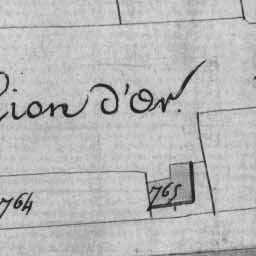 Lion d'Or.
764
765